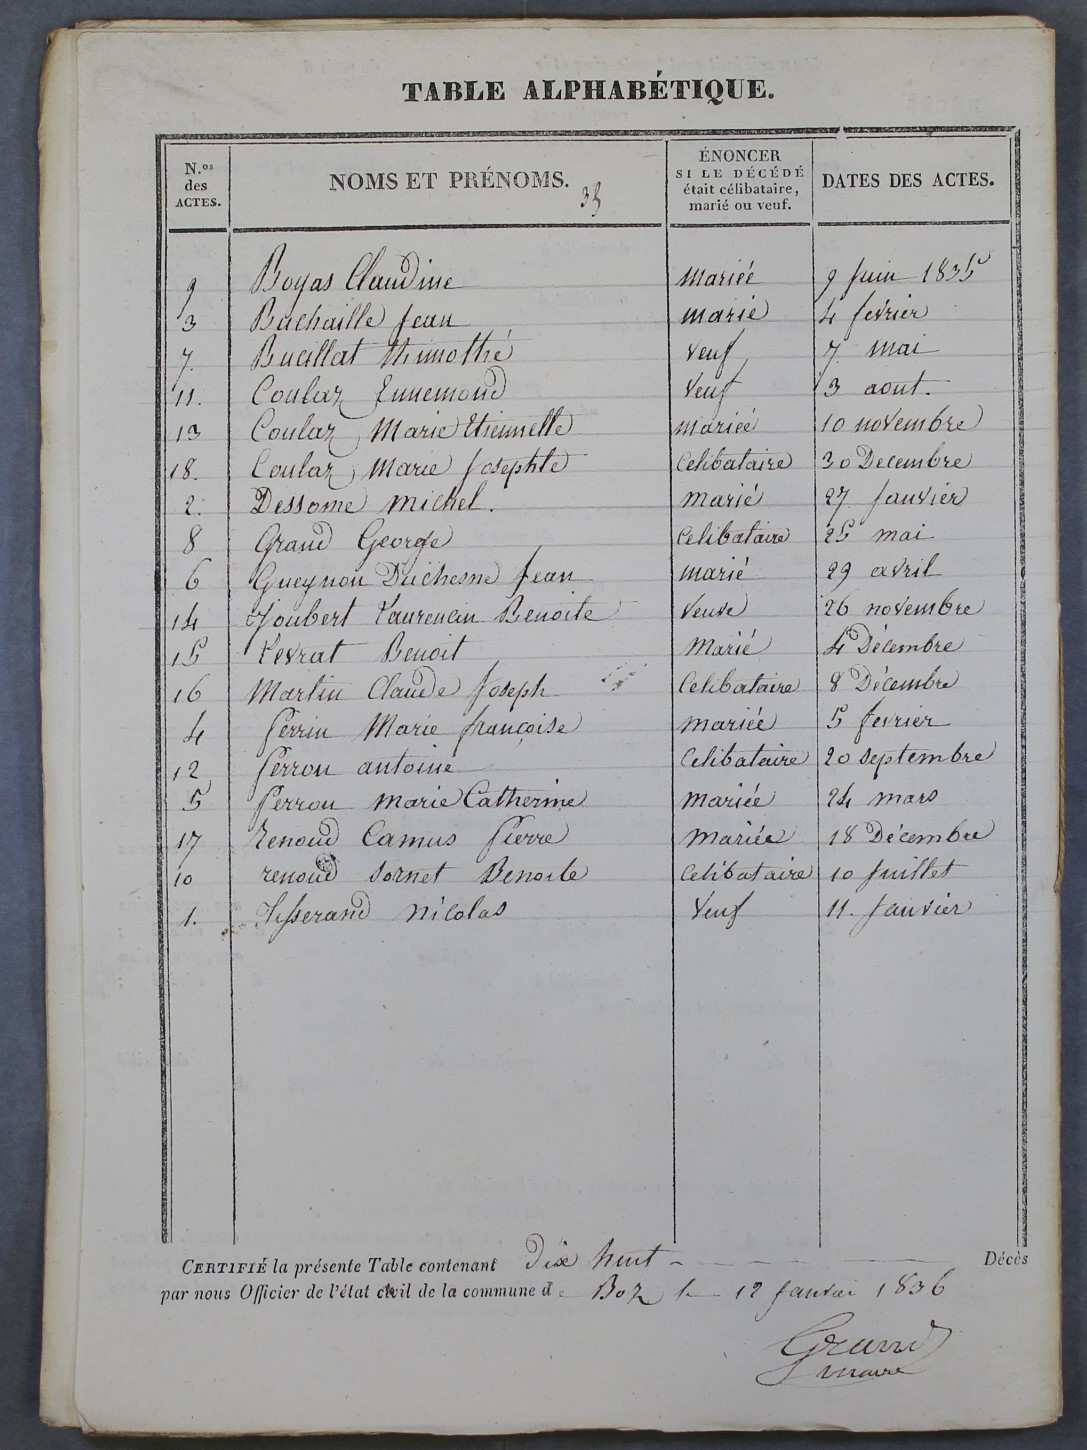 TABLE ALPHABÉTIQUE.
N.os des ACTES. NOMS ET PRÉNOMS. 35 ÉNONCER SI LE DÉCÉDÉ était célibataire, marié ou veuf. DATES DES ACTES.
9 Boyas Claudine mariée 9 Juin 1835
3 Buchaille Jean marié 4 février
7. Bucillat thimothé Veuf 7. mai
11. Coulaz Ennemond Veuf 3 aout.
13 Coulaz Marie Etiennette mariée 10 novembre
18. Coulaz, Marie Josephte Celibataire 30 Decembre
2. Dessome Michel. marié 27 Janvier
8 Grand George Celibataire 25 mai
6 Gueynon Duchesne Jean marié 29 avril
14 Joubert Laurencin Benoite Veuve 26 novembre
15 Levrat Benoit Marié 4 Décembre
16 Martin Claude Joseph Celibataire 8 Décembre
4 Perrin Marie françoise mariée 5 fevrier
12 Perron antoine Celibataire 20 septembre
5 Perron marie Catherine mariée 24 mars
17 Renoud Camus Pierre mariée 18 Décembre
10 renoud Sornet Benoite Celibataire 10 Juillet
1. Tisserand Nicolas Veuf 11. Janvier
CERTIFIÉ la présente Table contenant Dix huit Décès
par nous Officier de l'état civil de la commune de Boz le 12 Janvier 1836
Grand
maire